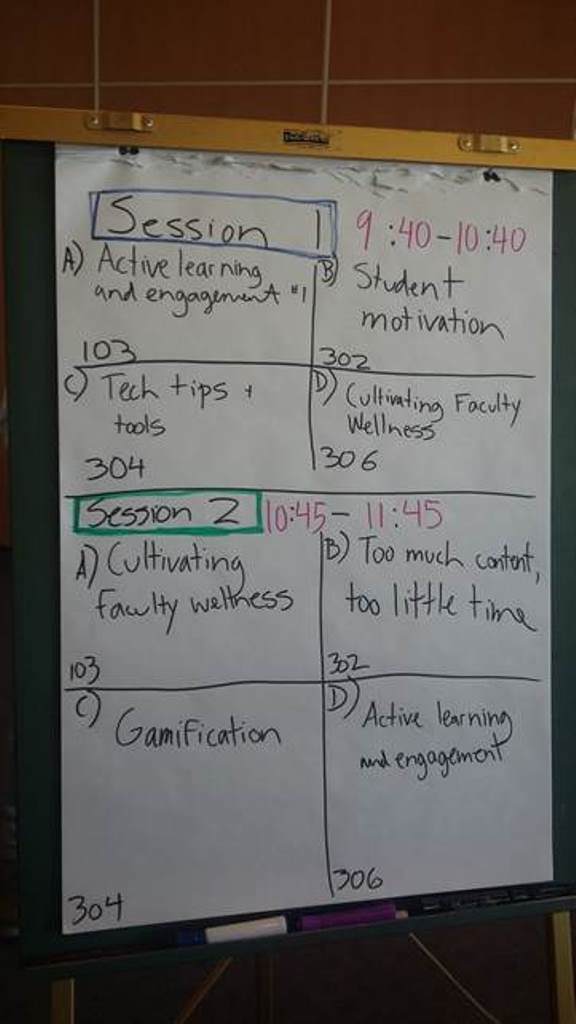 Session 1 9:40-10:40
A) Active learning
and engagement #1
103
B) Student
motivation
302
C) Tech tips +
tools
304
D) Cultivating Faculty
Wellness
306
Session 2 10:45 - 11:45
A) Cultivating
faculty wellness
103
B) Too much content,
too little time
302
C)
Gamification
304
D) Active learning
and engagement
306